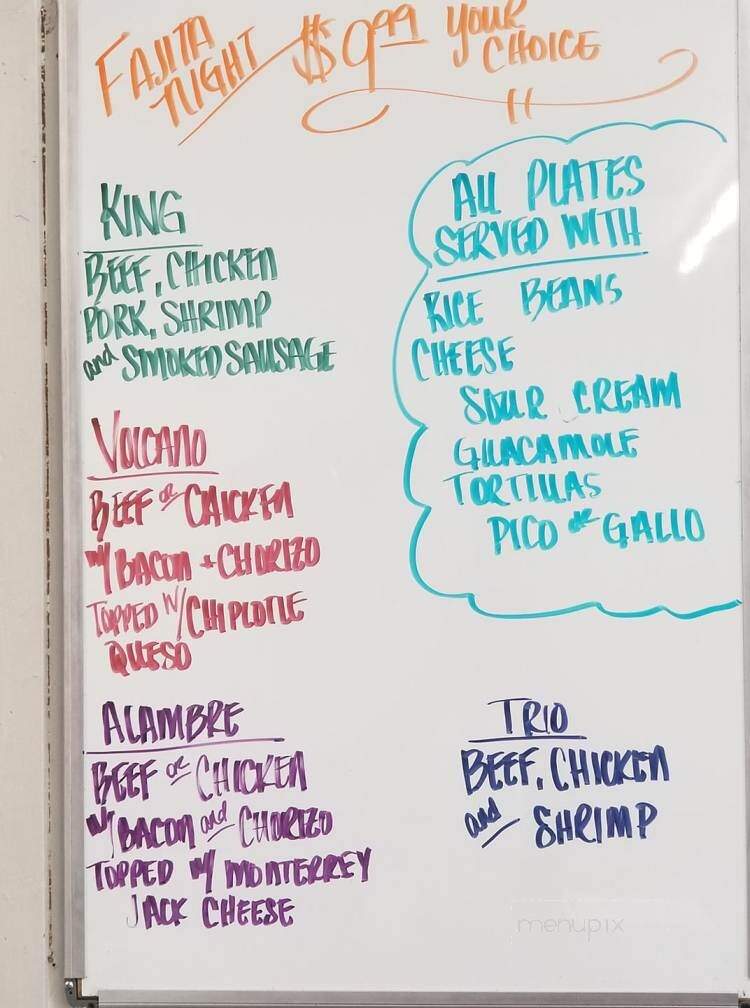 FAJITA
NIGHT
$9.99
YOUR
CHOICE
KING
BEEF, CHICKEN
PORK, SHRIMP
and SMOKED SAUSAGE
VOLCANO
BEEF or CHICKEN
w/ BACON + CHORIZO
TOPPED W/ CHIPLOTLE
QUESO
ALAMBRE
BEEF or CHICKEN
w/ BACON and CHORIZO
TOPPED W/ MONTERREY
JACK CHEESE
ALL PLATES
SERVED WITH
RICE BEANS
CHEESE
SOUR CREAM
GUACAMOLE
TORTILLAS
PICO de GALLO
TRIO
BEEF, CHICKEN
and SHRIMP
menupix